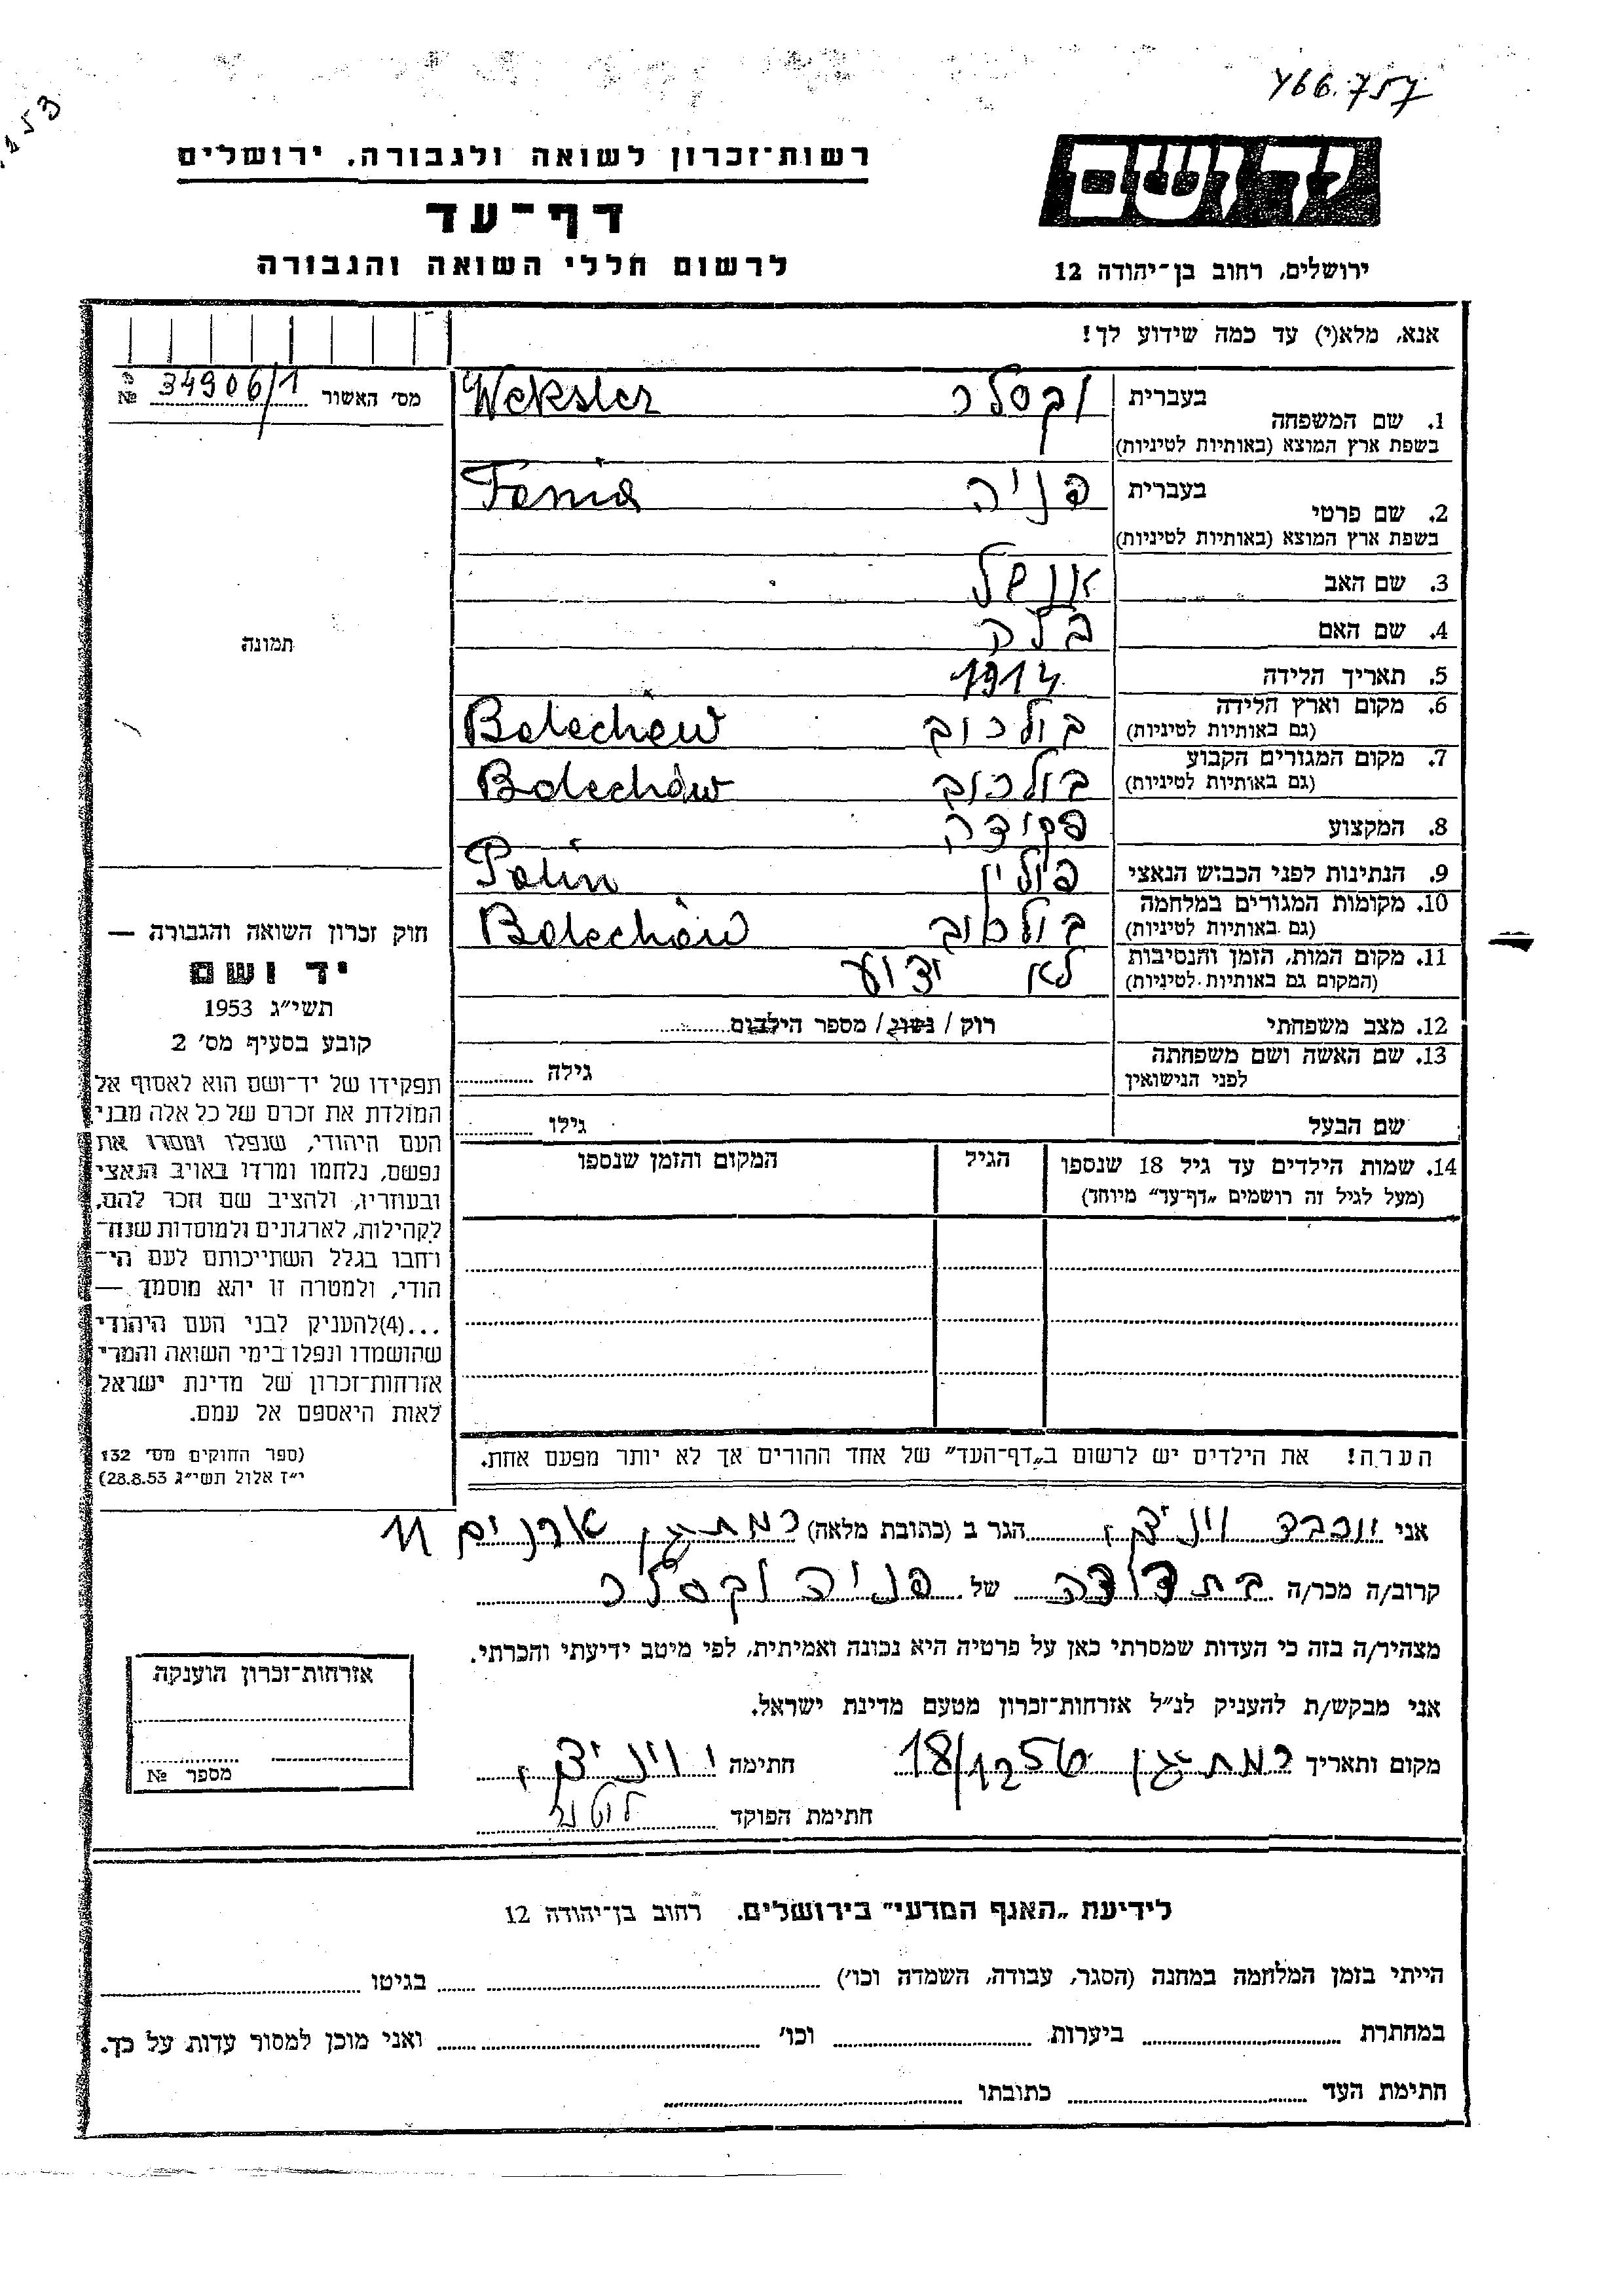 466.757
253
ידושם
ירושלים, רחוב בן־יהודה 12
רשות־זכרון לשואה ולגבורה, ירושלים
דף־עד
לרשום חללי השואה והגבורה
אנא, מלא(י) עד כמה שידוע לך!
מס׳ האשור 34906/1 №
בעברית וקסלר Weksler
1. שם המשפחה
בשפת ארץ המוצא (באותיות לטיניות)
בעברית פניה Fania
2. שם פרטי
בשפת ארץ המוצא (באותיות לטיניות)
3. שם האב אנשל
4. שם האם
5. תאריך הלידה 1914
6. מקום וארץ הלידה בולכוב Bolechów
(גם באותיות לטיניות)
7. מקום המגורים הקבוע בולכוב Bolechów
(גם באותיות לטיניות)
8. המקצוע פקידה
9. הנתינות לפני הכבוש הנאצי פולין Polin
10. מקומות המגורים במלחמה בולכוב Bolechów
(גם באותיות לטיניות)
11. מקום המות, הזמן והנסיבות לא ידוע
(המקום גם באותיות לטיניות)
12. מצב משפחתי רוק / נשוי / מספר הילדים
13. שם האשה ושם משפחתה גילה
לפני הנישואין
שם הבעל גילו
14. שמות הילדים עד גיל 18 שנספו הגיל המקום והזמן שנספו
(מעל לגיל זה רושמים „דף־עד״ מיוחד)
הערה! את הילדים יש לרשום ב„דף־העד״ של אחד ההורים אך לא יותר מפעם אחת.
תמונה
חוק זכרון השואה והגבורה —
יד ושם
תשי״ג 1953
קובע בסעיף מס׳ 2
תפקידו של יד־ושם הוא לאסוף אל
המולדת את זכרם של כל אלה מבני
העם היהודי, שנפלו ומסרו את
נפשם, נלחמו ומרדו באויב הנאצי
ובעוזריו, ולהציב שם וזכר להם,
לקהילות, לארגונים ולמוסדות שנח־
רחבו בגלל השתייכותם לעם הי־
הודי, ולמטרה זו יהא מוסמך —
...(4)להעניק לבני העם היהודי
שהושמדו ונפלו בימי השואה והמרי
אזרחות־זכרון של מדינת ישראל
לאות היאספם אל עמם.
(ספר החוקים מס׳ 132
י״ז אלול תשי״ג 28.8.53)
אני יוכבד הגר ב (כתובת מלאה) רמת גן ארנים 11
קרוב/ה מכר/ה בת דודה של פניה וקסלר
מצהיר/ה בזה כי העדות שמסרתי כאן על פרטיה היא נכונה ואמיתית, לפי מיטב ידיעתי והכרתי.
אני מבקש/ת להעניק לנ״ל אזרחות־זכרון מטעם מדינת ישראל.
מקום ותאריך רמת גן 18/ חתימה
חתימת הפוקד
אזרחות־זכרון הוענקה
מספר №
לידיעת „האגף המדעי״ בירושלים. רחוב בן־יהודה 12
הייתי בזמן המלחמה במחנה (הסגר, עבודה, השמדה וכו׳) בגיטו
במחתרת ביערות וכו׳ ואני מוכן למסור עדות על כך.
חתימת העד כתובתו